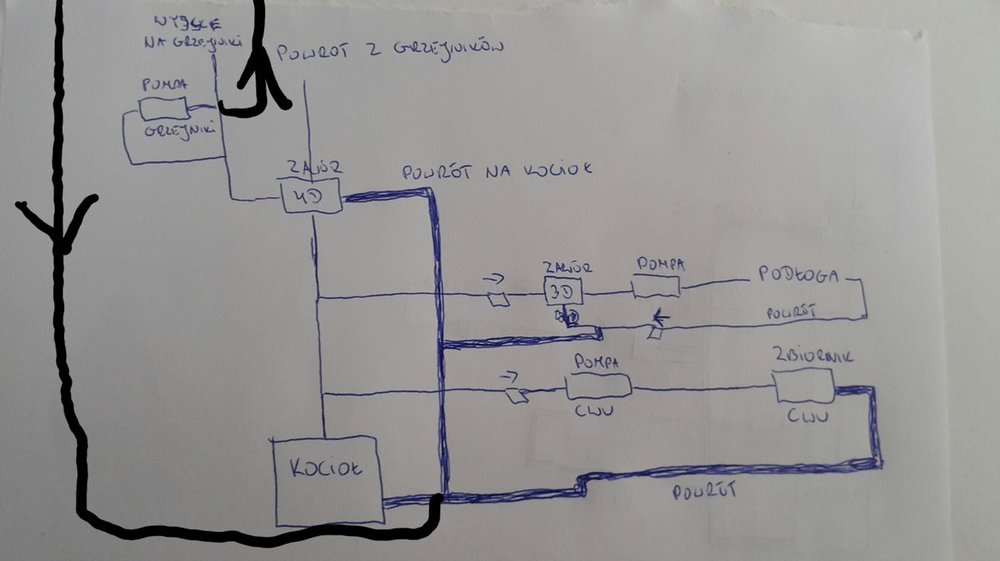 WYJŚCIE
NA GRZEJNIKI
POWRÓT Z GRZEJNIKÓW
POMPA
GRZEJNIKI
ZAWÓR
4D
POWRÓT NA KOCIOŁ
ZAWÓR
3D
POMPA
PODŁOGA
POWRÓT
POMPA
CWU
ZBIORNIK
CWU
KOCIOŁ
POWRÓT